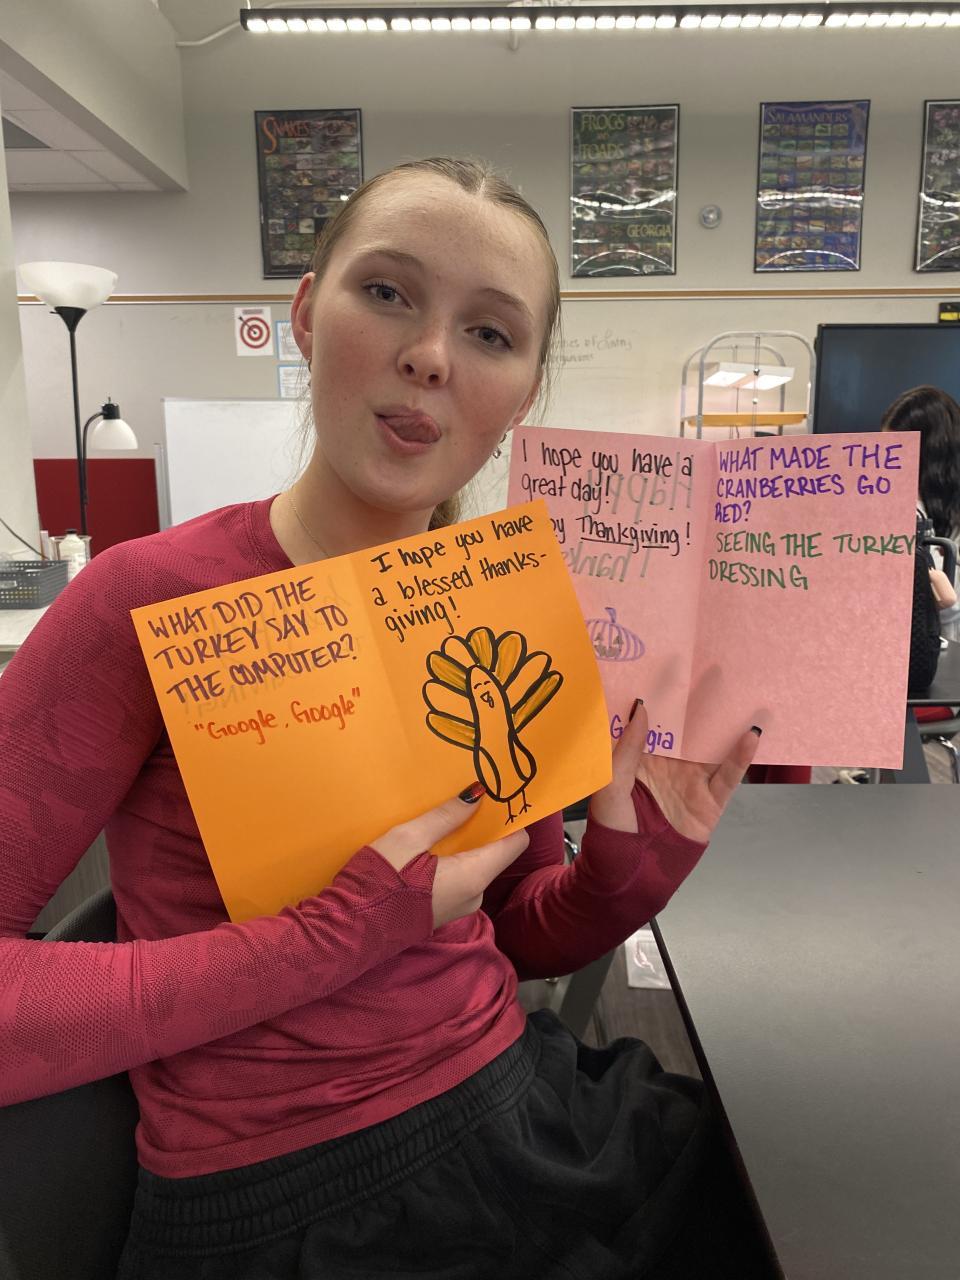 SNAKES
FROGS
AND
TOADS
GEORGIA
SALAMANDERS
WHAT DID THE
TURKEY SAY TO
THE COMPUTER?
"Google, Google"
I hope you have
a blessed thanks-
giving!
I hope you have a
great day!
Thanksgiving!
WHAT MADE THE
CRANBERRIES GO
RED?
SEEING THE TURKEY
DRESSING